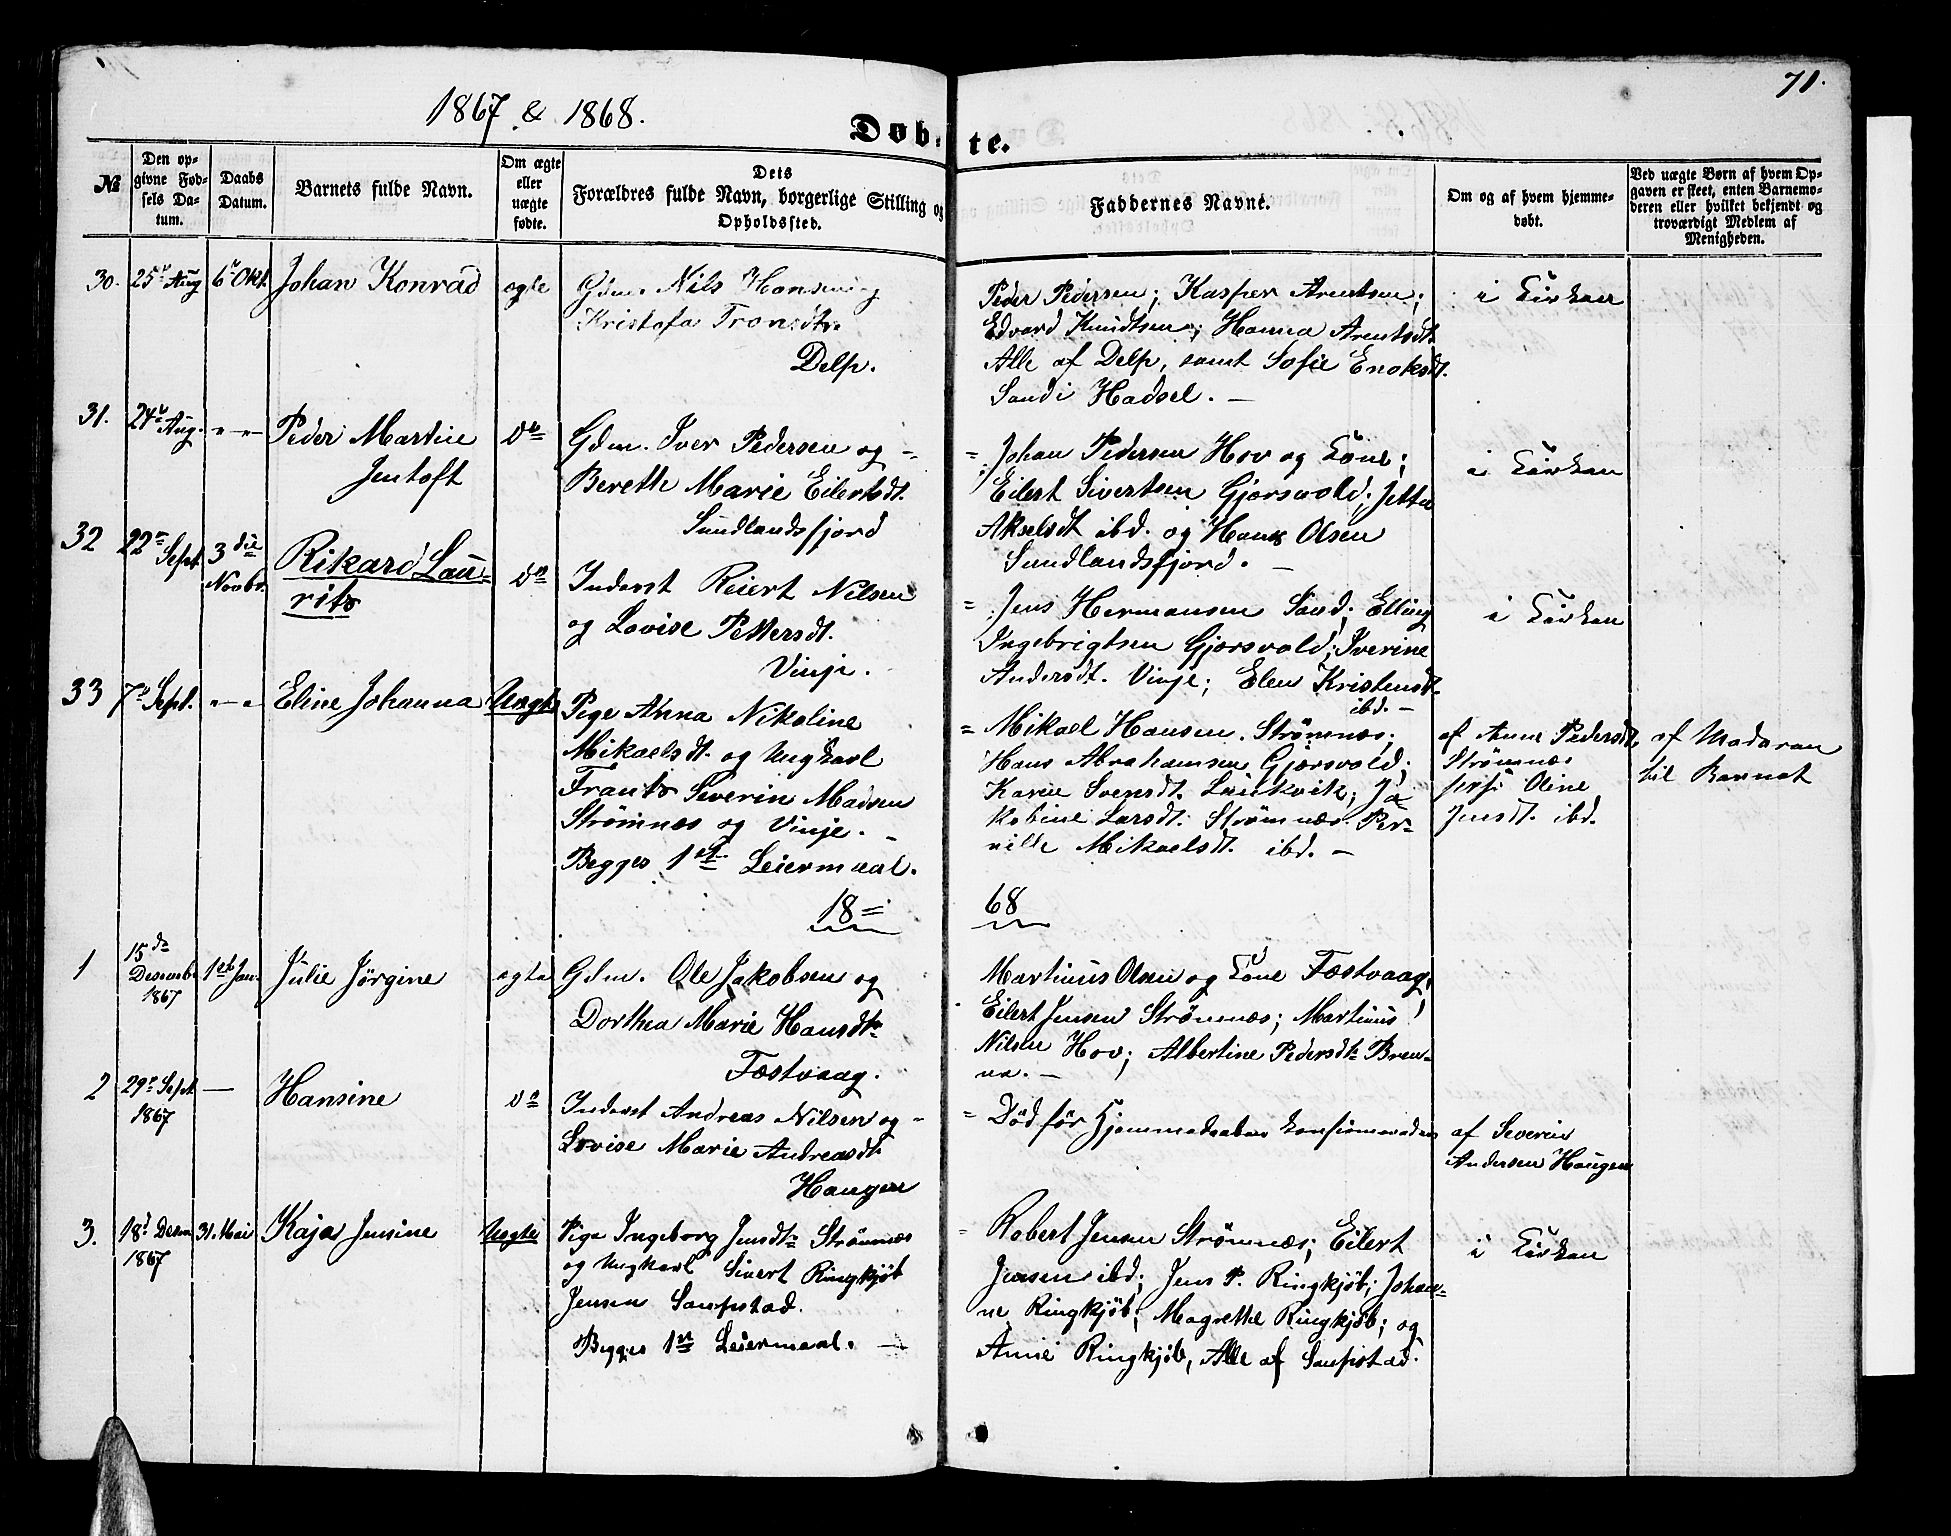 71.
1867 & 1868.
Døbte.
№
Den opgivne Fødsels Datum.
Daabs Datum.
Barnets fulde Navn.
Om ægte eller uægte fødte.
Dets Forældres fulde Navn, borgerlige Stilling og Opholdssted.
Faddernes Navne.
Om og af hvem hjemmedøbt.
Ved uægte Børn af hvem Opgaven er skeet, enten Barnemoderen eller hvilket bekjendt og troværdigt Medlem af Menigheden.
30. 25r Aug 6r Okt. Johan Konrad ægte
Gdm. Nils Hansen og
Kristofa Tronsdtr.
Delp.
Peder Pedersen; Kasper Arentsen;
Edvard Knudtsen; Hanna Arentsdt.
Alle af Delp, samt Sofie Enoksdt.
Sand i Hadsel. —
i Kirken
31. 24r Aug. „—„ Peder Martin
Jentoft
do
Gdm. Iver Pedersen og
Bereth Marie Eilertsdt.
Sundlandsfjord
= Johan Pedersen Hov og Kone;
Eilert Sivertsen Gjørsvold; Jetta
Akselsdt ibd. og Hans Olsen
Sundlandsfjord. —
i Kirken
32 22de Sept 3die Novbr. Rikard Lau-
rits
do
Inderst Reiert Nilsen
og Lovise Pettersdt.
Vinje.
= Jens Hermansen Sand; Elling
Ingebrigtsen Gjørsvold; Iverine
Andersdt. Vinje; Elen Kristensdt.
ibd. —
i Kirken
33 7e Sept. „—„ Eline Johanna Uægte
Pige Anna Nikoline
Mikaelsdt. og Ungkarl
Frants Severin Madsen
Strømnes og Vinje. —
Begges 1st Leiermaal.
= Mikael Hansen Strømnæs;
Hans Abrahamsen Gjørsvold;
Karen Svensdt. Laukvik; Ja
kobine Larsdt. Strømnæs. Per-
nilde Mikaelsdt. ibd. —
af Anne Pedersdt.
Strømnæs
Oline
Jensdt. ibd.
af Moderen
til Barnet
18= 68
1 15de Desemb. 1867 1st Jan. Julie Jørgine ægte
Gdm. Ole Jakobsen og
Dorthea Marie Hansdtr.
Føstvaag.
Martinus Olsen og Kone Fæstvaag,
Eilert Jensen Strømnæs; Martinus
Nilsen Hov; Albertine Pedersdtr Bren-
na. —
2 29e Sept 1867 — Hansine do
Inderst Andreas Nilsen og
Lovise Marie Andreasdt.
Haugen
= Død før Hjemmedaaben konfirmeredes
af Severin
Andersen Haugen
3. 18d Desm 1867 31. Mai Kaja Jensine Uægte
Pige Ingeborg Jensdtr Strømnæs
og Ungkarl Sivert Ringkjøb
Jensen Saupstad.
Begges 1st Leiermaal. —
= Robert Jensen Strømnæs; Eilert
Jensen ibd; Jens P. Ringkjøb; Johan-
ne Ringkjøb; Magrethe Ringkjøb; og
Anne Ringkjøb, Alle af Saupstad.
i Kirken